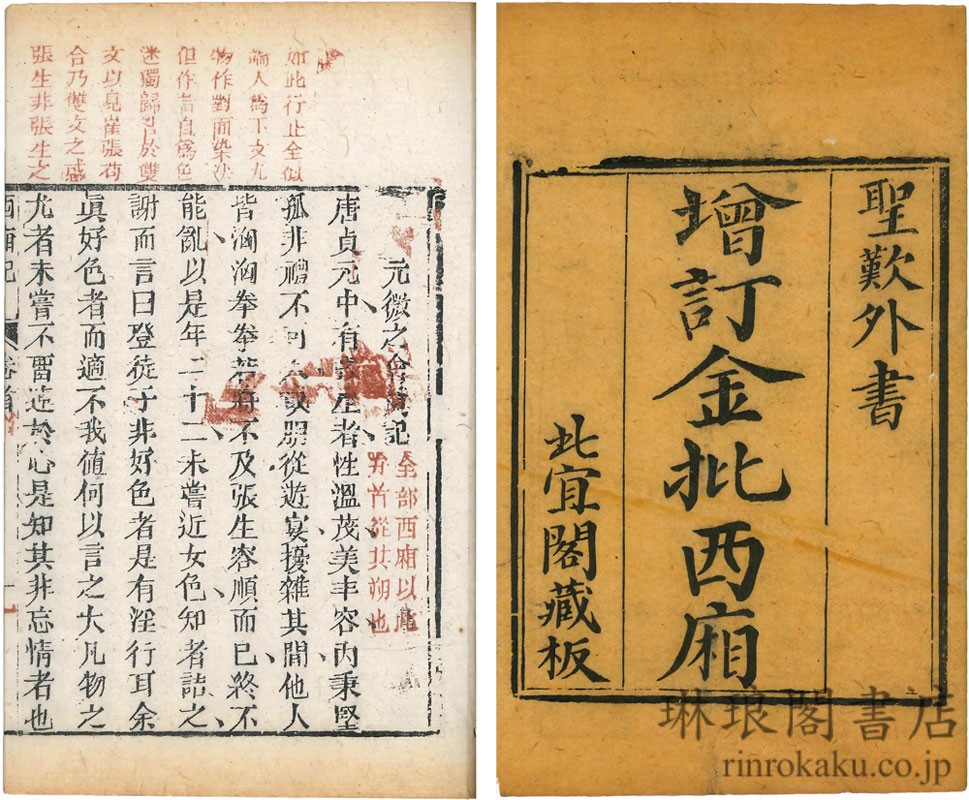 聖歎外書
增訂金批西廂
此宜閣藏板
琳琅閣書店
rinrokaku.co.jp
如此行止全似
人為下文尤
物作對而
但作者自為色
迷獨歸咎於雙
文以見崔張苟
合乃雙文之惑
張生非張生之
元微之會真記
全部西廂以此
為首從其朔也
唐貞元中有張生者性溫茂美丰容內秉堅
孤非禮不可入或朋從遊宴擾雜其間他人
皆洶洶拳拳若將不及張生容順而已終不
能亂以是年二十二未嘗近女色知者詰之
謝而言曰登徒子非好色者是有淫行耳余
眞好色者而適不我値何以言之大凡物之
尤者未嘗不畱連於心是知其非忘情者也
西廂記 卷首